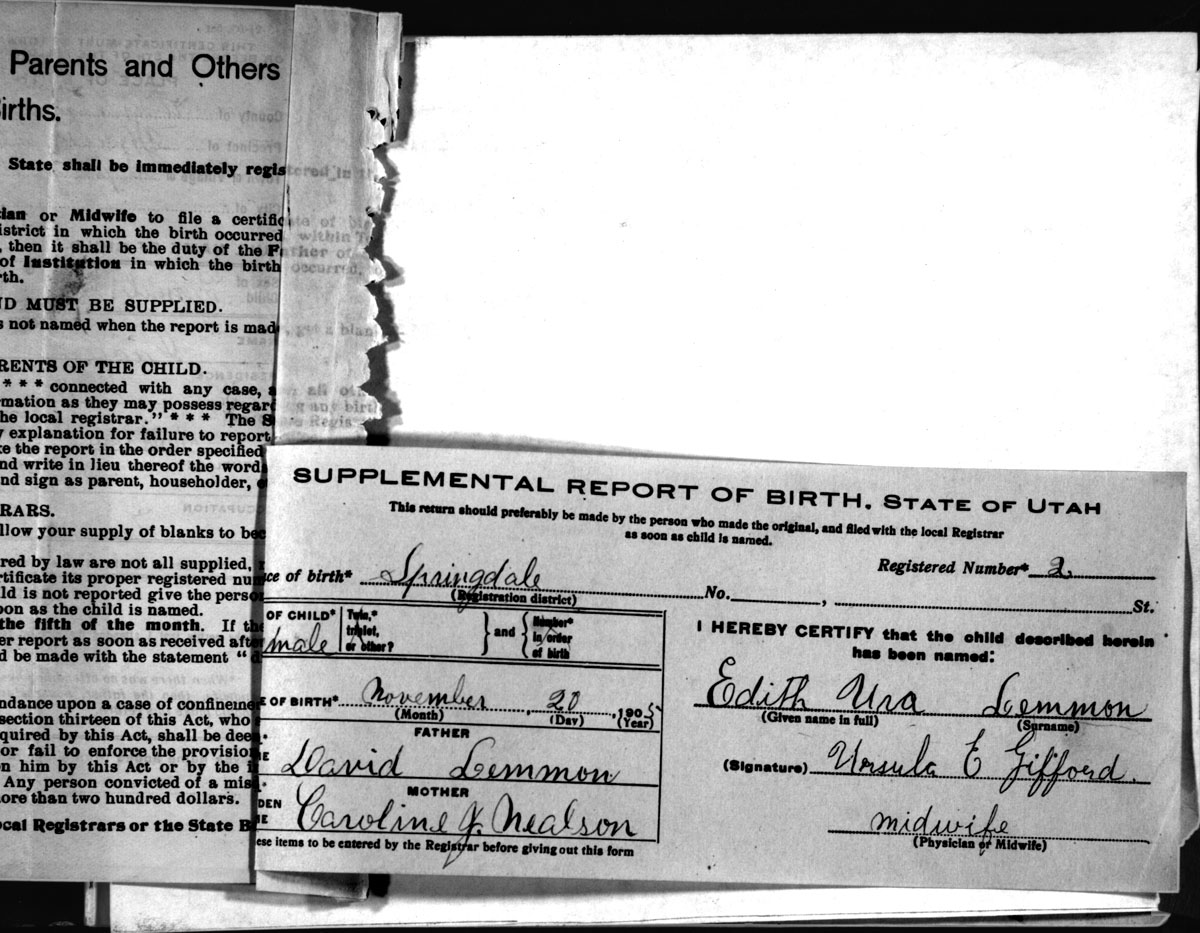 Parents and Others
Births.
State shall be immediately regis
ian or Midwife to file a certific
istrict in which the birth occurred
, then it shall be the duty of the F
of Institution in which the birth
rth.
ND MUST BE SUPPLIED.
s not named when the report is mad
RENTS OF THE CHILD.
* * * connected with any case, a
rmation as they may possess regar
he local registrar." * * * The S
y explanation for failure to report
ke the report in the order specified
nd write in lieu thereof the word
nd sign as parent, householder,
RARS.
llow your supply of blanks to bec
red by law are not all supplied,
rtificate its proper registered num
ild is not reported give the perso
oon as the child is named.
the fifth of the month. If th
er report as soon as received afte
d be made with the statement "
ndance upon a case of confineme
section thirteen of this Act, who
quired by this Act, shall be dee
or fail to enforce the provision
n him by this Act or by the
Any person convicted of a mis
ore than two hundred dollars.
ocal Registrars or the State B
SUPPLEMENTAL REPORT OF BIRTH, STATE OF UTAH
This return should preferably be made by the person who made the original, and filed with the local Registrar
as soon as child is named.
Registered Number* 2
ce of birth* Springdale No. , St.
(Registration district)
OF CHILD* male
Twin,* triplet, or other? } and { Number* in order of birth
E OF BIRTH* November , 20 , 1905
(Month) (Day) (Year)
FATHER
David Lemmon
MOTHER
DEN
Caroline J. Nealson
ese items to be entered by the Registrar before giving out this form
I HEREBY CERTIFY that the child described herein
has been named:
Edith Ura Lemmon
(Given name in full) (Surname)
(Signature) Ursula E Gifford.
midwife
(Physician or Midwife)